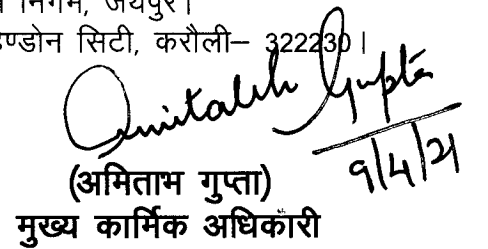 निगम, जयपुर।
हिण्डोन सिटी, करौली– 322230।
Amitabh Gupta
9/4/21
(अमिताभ गुप्ता)
मुख्य कार्मिक अधिकारी